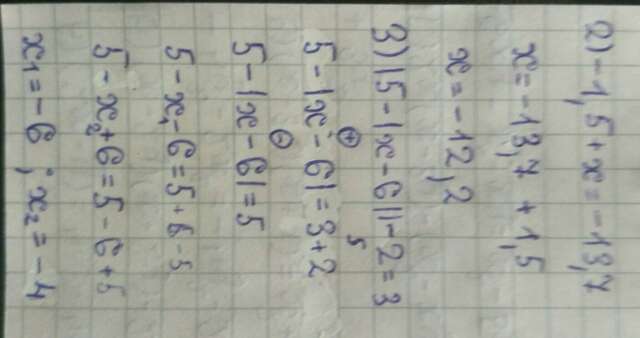 2) -1,5+x=-13,7
x=-13,7+1,5
x=-12,2
3) |5-|x-6||-2=3
5
5-|x-6|=3+2
5-|x-6|=5
5-x₁-6=5+6-5
5-x₂+6=5-6+5
x₁=-6; x₂=-4